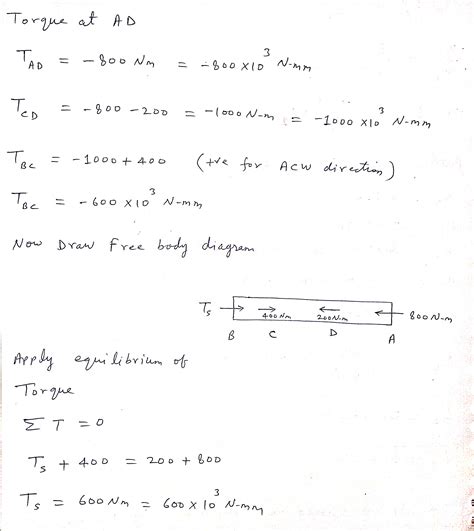 Torque at AD
T_AD = -800 Nm = -800 x 10^3 N-mm
T_CD = -800 - 200 = -1000 N-m = -1000 x 10^3 N-mm
T_BC = -1000 + 400 (+ve for ACW direction)
T_BC = -600 x 10^3 N-mm
Now Draw free body diagram
T_s → 400 Nm 200 N.m ← 800 N-m
B C D A
Apply equilibrium of
Torque
Σ T = 0
T_s + 400 = 200 + 800
T_s = 600 Nm = 600 x 10^3 N-mm